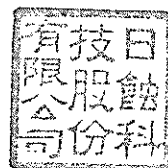 日蝕科
技股份
有限公司